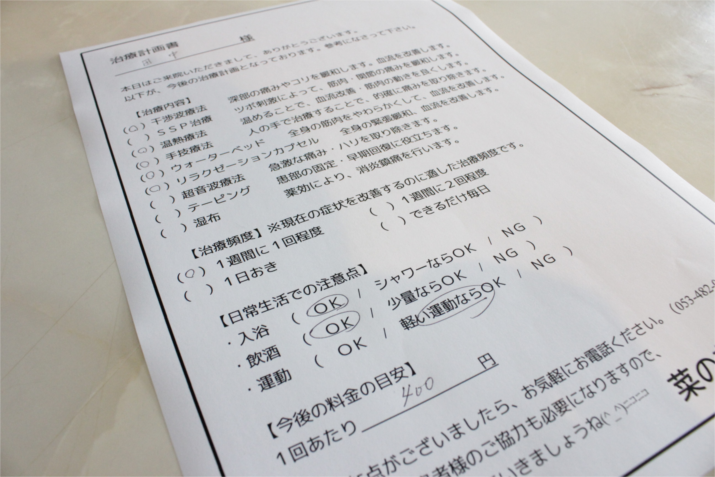 治療計画書
様
本日はご来院いただきまして、ありがとうございます。
以下が、今後の治療計画となっております。参考になさって下さい。
【治療内容】
(○) 干渉波療法 深部の痛みやコリを緩和します。血流を改善します。
( ) SSP治療 ツボ刺激によって、筋肉・関節の痛みを緩和します。
(○) 温熱療法 温めることで、血流改善・筋肉の動きを良くします。
(○) 手技療法 人の手で治療することで、的確に痛みを取り除きます。
(○) ウォーターベッド 全身の筋肉をやわらかくして、血流を改善します。
(○) リラクゼーションカプセル 全身の緊張緩和、血流を改善します。
( ) 超音波療法 急激な痛み・ハリを取り除きます。
( ) テーピング 患部の固定・早期回復に役立ちます。
( ) 湿布 薬効により、消炎鎮痛を行います。
【治療頻度】※現在の症状を改善するのに適した治療頻度です。
(○) 1週間に1回程度 ( ) 1週間に2回程度
( ) 1日おき ( ) できるだけ毎日
【日常生活での注意点】
・入浴 ( OK / シャワーならOK / NG )
・飲酒 ( OK / 少量ならOK / NG )
・運動 ( OK / 軽い運動ならOK / NG )
【今後の料金の目安】
1回あたり 400 円
点がございましたら、お気軽にお電話ください。(053-482-
者様のご協力も必要になりますので、
いきましょうね(^_^)ニコニコ
菜の